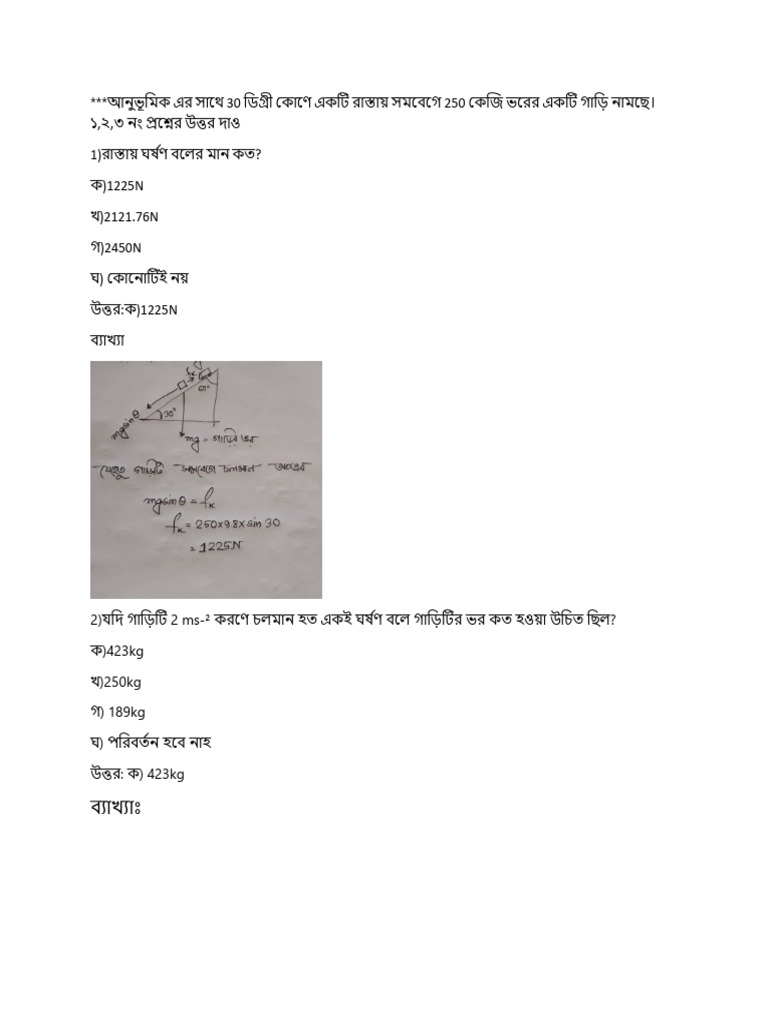 ***আনুভূমিক এর সাথে 30 ডিগ্রী কোণে একটি রাস্তায় সমবেগে 250 কেজি ভরের একটি গাড়ি নামছে।
১,২,৩ নং প্রশ্নের উত্তর দাও
1)রাস্তায় ঘর্ষণ বলের মান কত?
ক)1225N
খ)2121.76N
গ)2450N
ঘ) কোনোটিই নয়
উত্তর:ক)1225N
ব্যাখ্যা
60°
30°
mgsinθ
mg = গাড়ির ভর
যেহেতু গাড়িটি সমবেগে চলমান অতএব
mgsinθ = fₖ
fₖ = 250×9.8×sin 30
= 1225N
2)যদি গাড়িটি 2 ms-² করণে চলমান হত একই ঘর্ষণ বলে গাড়িটির ভর কত হওয়া উচিত ছিল?
ক)423kg
খ)250kg
গ) 189kg
ঘ) পরিবর্তন হবে নাহ
উত্তর: ক) 423kg
ব্যাখ্যাঃ